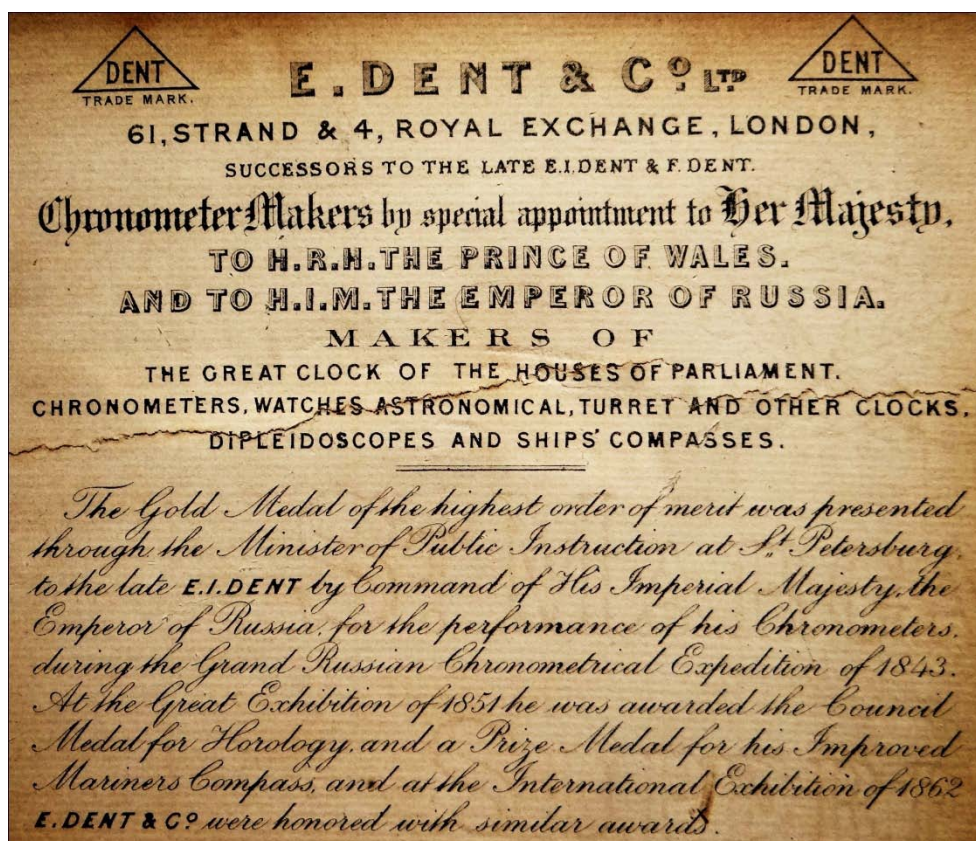 DENT
TRADE MARK.
E. DENT & Cº. LTD
DENT
TRADE MARK.
61, STRAND & 4, ROYAL EXCHANGE, LONDON,
SUCCESSORS TO THE LATE E.I.DENT & F. DENT.
Chronometer Makers by special appointment to Her Majesty,
TO H.R.H. THE PRINCE OF WALES.
AND TO H.I.M. THE EMPEROR OF RUSSIA.
MAKERS OF
THE GREAT CLOCK OF THE HOUSES OF PARLIAMENT.
CHRONOMETERS, WATCHES ASTRONOMICAL, TURRET AND OTHER CLOCKS,
DIPLEIDOSCOPES AND SHIPS' COMPASSES.
The Gold Medal of the highest order of merit was presented
through the Minister of Public Instruction at St. Petersburg,
to the late E.I.DENT by Command of His Imperial Majesty, the
Emperor of Russia, for the performance of his Chronometers,
during the Grand Russian Chronometrical Expedition of 1843.
At the Great Exhibition of 1851 he was awarded the Council
Medal for Horology, and a Prize Medal for his Improved
Mariners Compass, and at the International Exhibition of 1862
E. DENT & Cº were honored with similar awards.